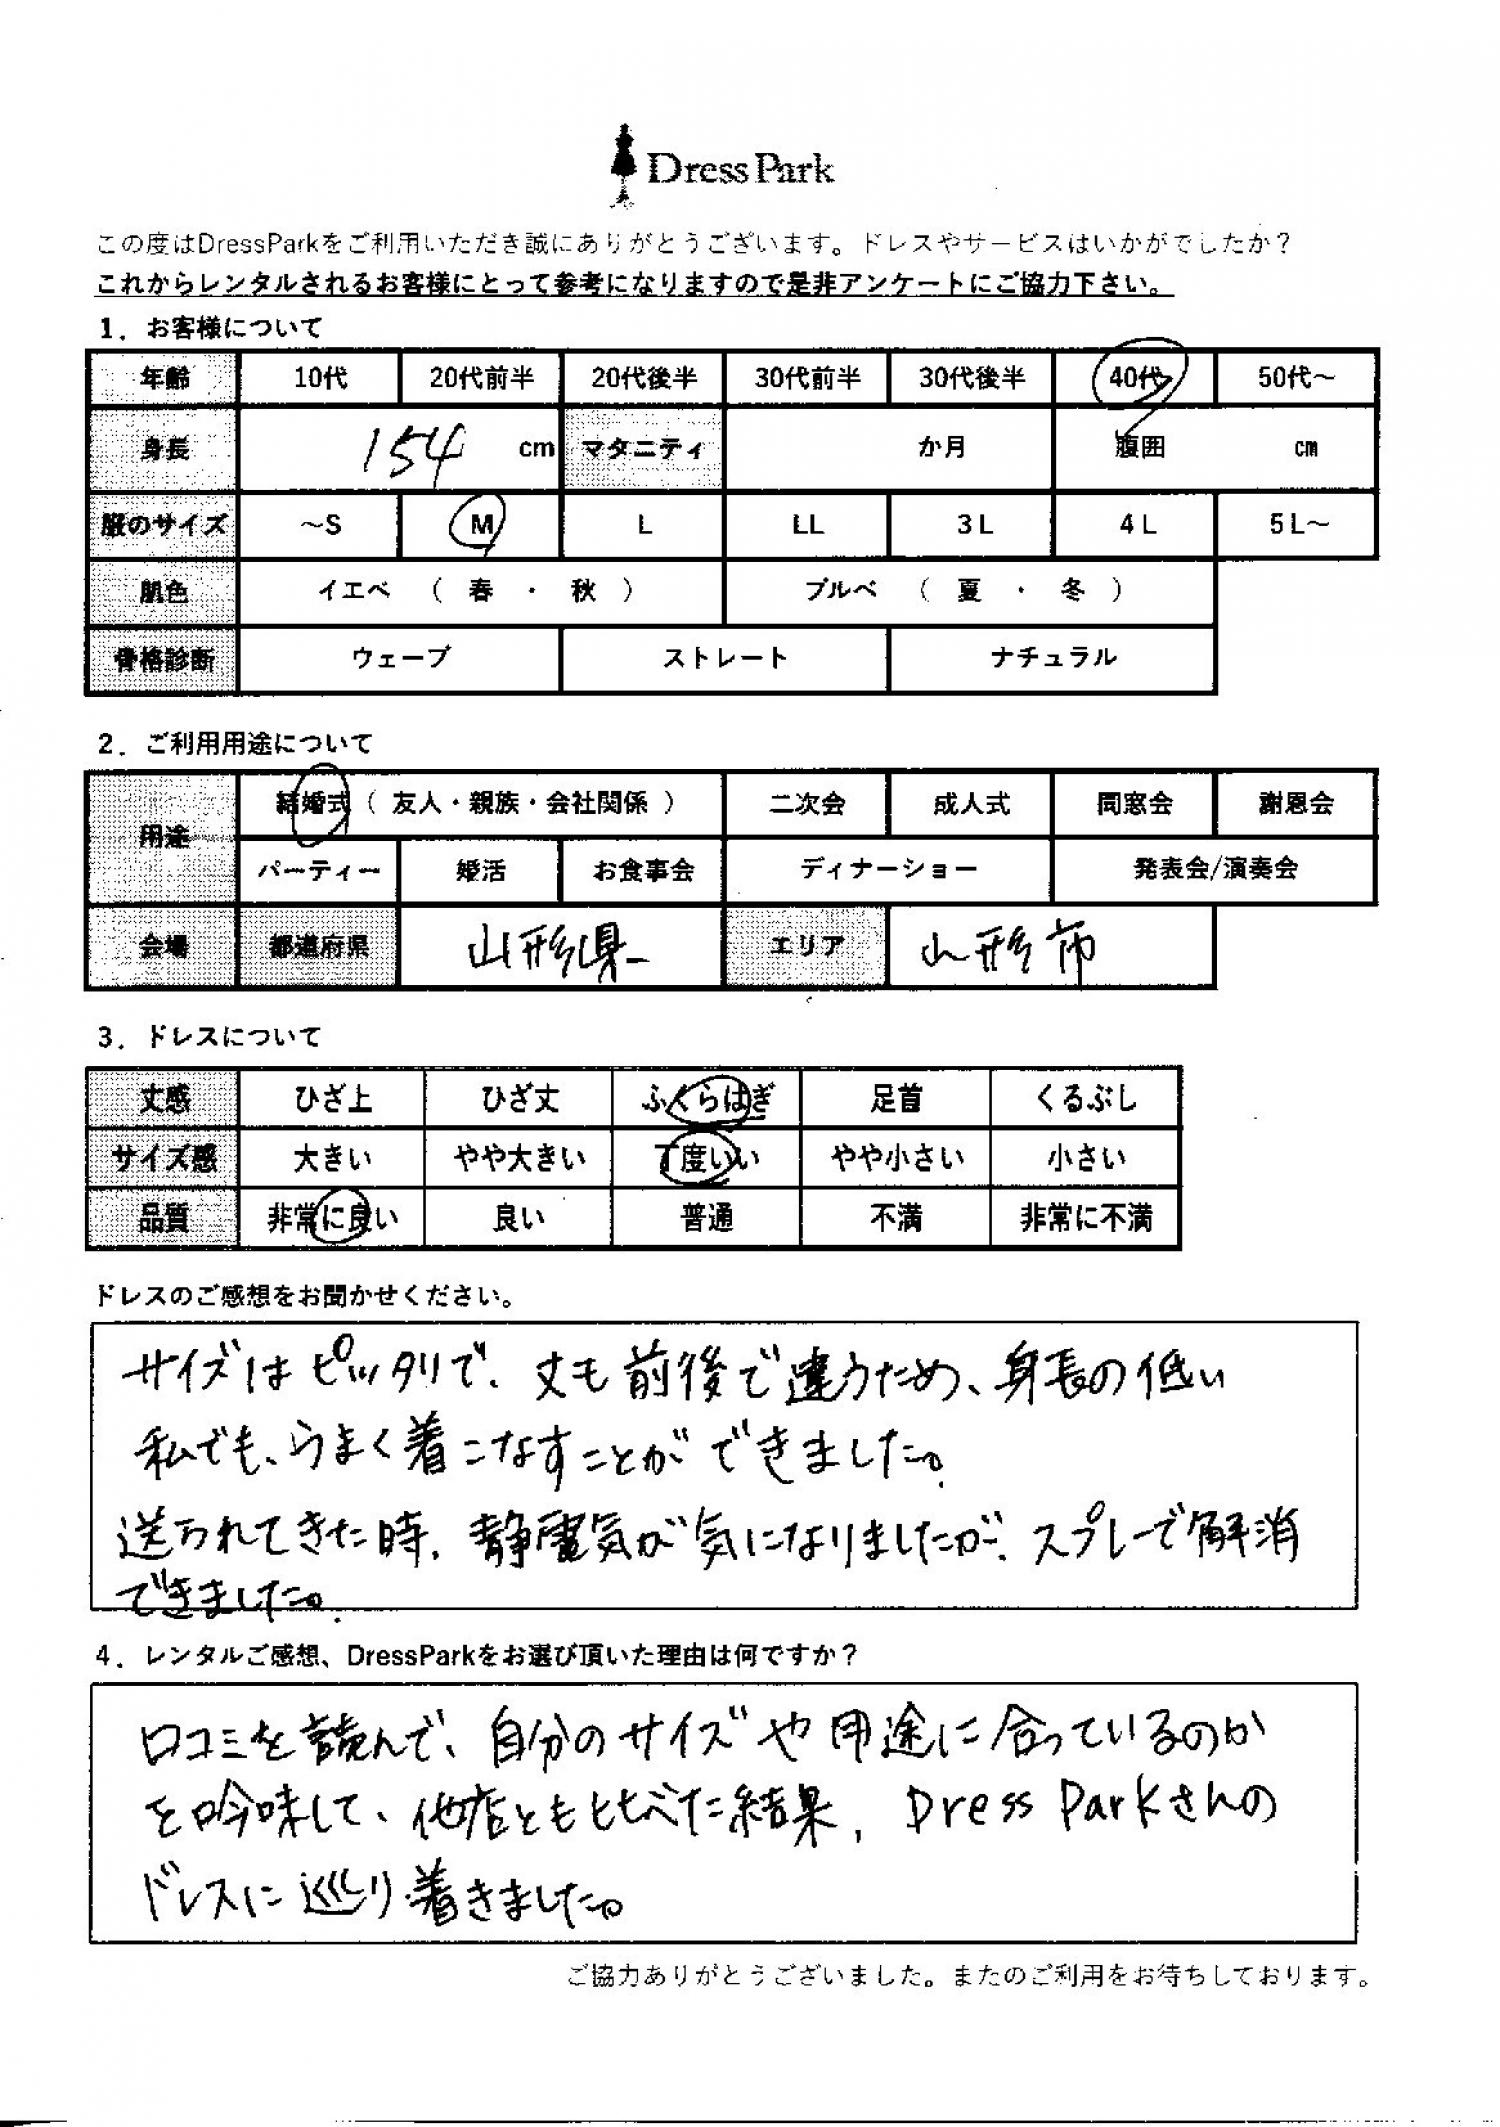 Dress Park
この度はDressParkをご利用いただき誠にありがとうございます。ドレスやサービスはいかがでしたか？
これからレンタルされるお客様にとって参考になりますので是非アンケートにご協力下さい。
1．お客様について
年齢 10代 20代前半 20代後半 30代前半 30代後半 40代 50代～
身長 154 cm マタニティ か月 腹囲 cm
服のサイズ ～S M L LL 3L 4L 5L～
肌色 イエベ （ 春 ・ 秋 ） ブルベ （ 夏 ・ 冬 ）
骨格診断 ウェーブ ストレート ナチュラル
2．ご利用用途について
用途 結婚式（ 友人・親族・会社関係 ） 二次会 成人式 同窓会 謝恩会
パーティー 婚活 お食事会 ディナーショー 発表会/演奏会
会場 都道府県 山形県 エリア 山形市
3．ドレスについて
丈感 ひざ上 ひざ丈 ふくらはぎ 足首 くるぶし
サイズ感 大きい やや大きい 丁度いい やや小さい 小さい
品質 非常に良い 良い 普通 不満 非常に不満
ドレスのご感想をお聞かせください。
サイズはピッタリで、丈も前後で違うため、身長の低い
私でも、うまく着こなすことができました。
送られてきた時、静電気が気になりましたが、スプレーで解消
できました。
4．レンタルご感想、DressParkをお選び頂いた理由は何ですか？
口コミを読んで、自分のサイズや用途に合っているのか
を吟味して、他店ともくらべた結果、Dress Parkさんの
ドレスに巡り着きました。
ご協力ありがとうございました。またのご利用をお待ちしております。